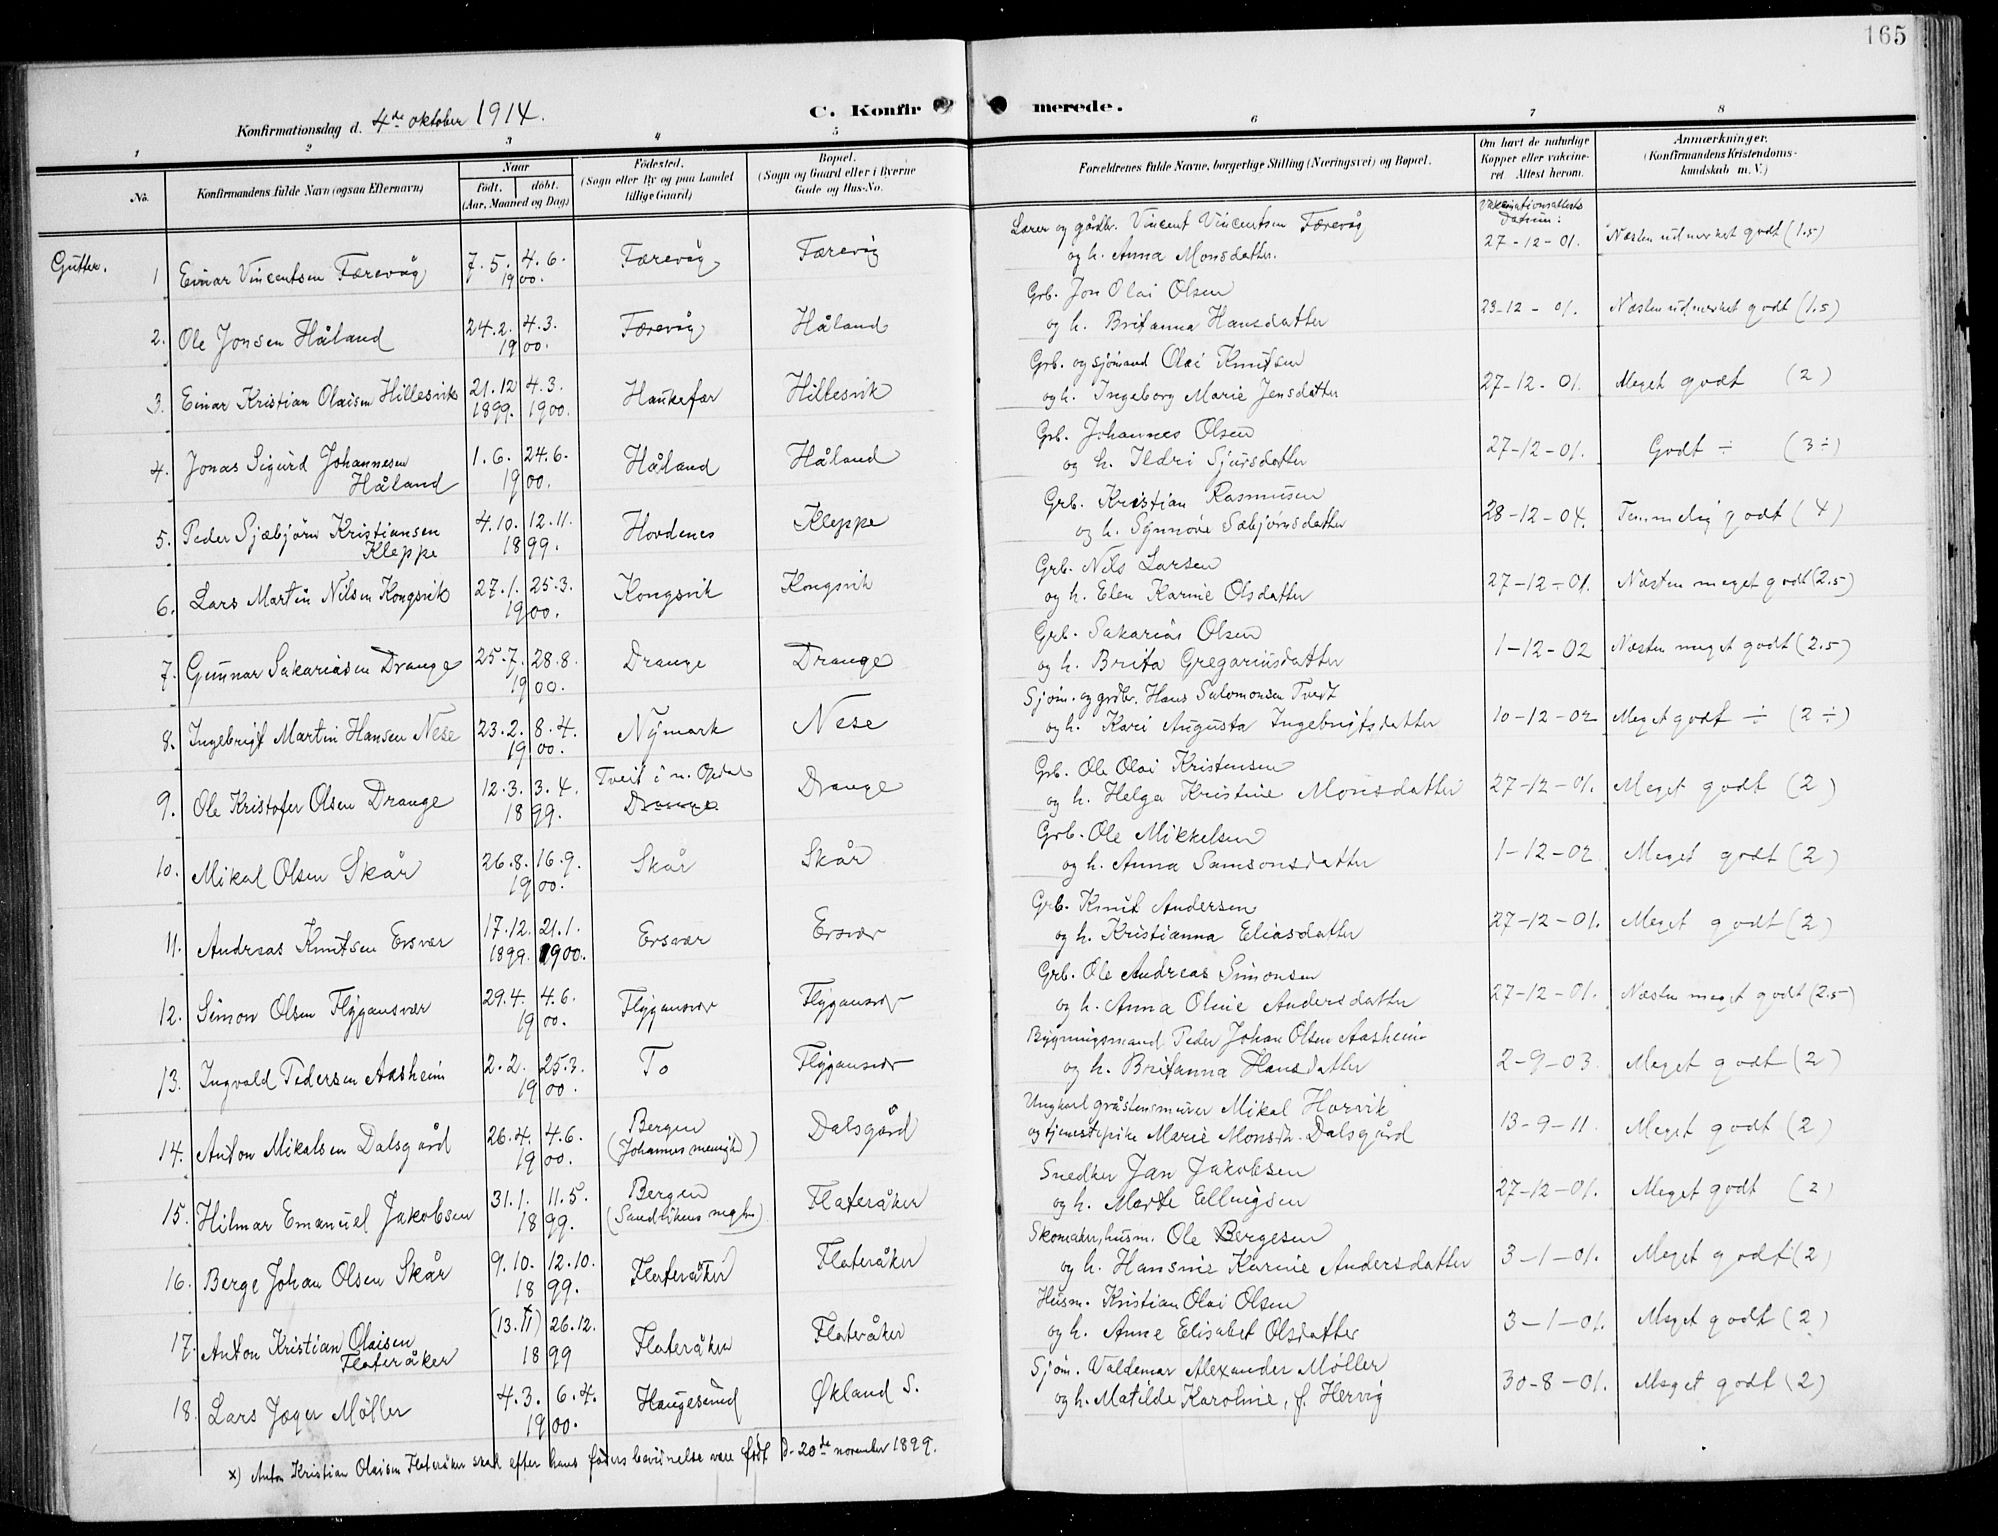 165
C. Konfirmerede.
Konfirmationsdag d. 4de oktober 1914.
1 2 3 4 5 6 7 8
No.
Konfirmandens fulde Navn (ogsaa Efternavn)
Naar
født. døbt.
(Aar, Maaned og Dag)
Fødested.
(Sogn eller By og paa Landet
tillige Gaard)
Bopæl.
(Sogn og Gaard eller i Byerne
Gade og Hus-No.
Forældrenes fulde Navne, borgerlige Stilling (Næringsvei) og Bopæl.
Om havt de naturlige
Kopper eller vakcine-
ret. Attest herom.
Anmærkninger.
(Konfirmandens Kristendoms-
kundskab m. V.)
Vakcinationsattests
Datum:
Gutter.
1 Einar Vincentsen Færevåg 7.5. 4.6. 1900. Færevåg Færevåg Lærer og gårdbr. Vincent Vincentsen Færevåg 27-12-01. Næsten udmerket godt (1.5)
og h. Anna Monsdatter.
2. Ole Jonsen Håland 24.2. 4.3. 1900. Færevåg Håland Grb. Jon Olai Olsen 23-12-01. Næsten udmerket godt (1.5)
og h. Britanna Hansdatter
3. Einar Kristian Olaisen Hillesvik 21.12 1899. 4.3. 1900. Haukefær Hillesvik Grb. og sjömand Olai Knutsen 27-12-01. Meget godt (2)
og h. Ingeborg Marie Jensdatter
4. Jonas Sigurd Johannesen Håland 1.6. 24.6. 1900. Håland Håland Grb. Johannes Olsen 27-12-01. Godt ÷ (3÷)
og h. Ildri Sjursdatter
5. Peder Sjæbjörn Kristiansen Kleppe 4.10. 12.11. 1899. Hovdenes Kleppe Grb. Kristian Rasmussen 28-12-04. Temmelig godt (4)
og h. Synnöve Sæbjörnsdatter
6. Lars Martin Nilsen Kongsvik 27.1. 25.3. 1900. Kongsvik Kongsvik Grb. Nils Larsen 27-12-01. Næsten meget godt (2.5)
og h. Elen Karine Olsdatter
7. Gunnar Sakariasen Drange 25.7. 28.8. 1900. Drange Drange Grb. Sakarias Olsen 1-12-02 Næsten meget godt (2.5)
og h. Brita Gregariusdatter
8. Ingebrigt Martin Hansen Nese 23.2. 8.4. 1900. Nymark Nese Sjöm. og grdbr. Hans Salomonsen Tvedt 10-12-02 Meget godt ÷ (2÷)
og h. Kari Augusta Ingebrigtsdatter
9. Ole Kristofer Olsen Drange 12.3. 3.4. 1899. Tveit i n. Opdal Drange Drange Grb. Ole Olai Kristensen 27-12-01. Meget godt (2)
og h. Helga Kristine Monsdatter
10. Mikal Olsen Skår 26.8. 16.9. 1900. Skår Skår Grb. Ole Mikkelsen 1-12-02 Meget godt (2)
og h. Anna Samsonsdatter
11. Andreas Knutsen Ersvær 17.12. 1899. 21.1. 1900. Ersvær Ersvær Grb. Knut Andersen 27-12-01. Meget godt (2)
og h. Kristianna Eliasdatter
12. Simon Olsen Flygansvær 29.4. 4.6. 1900. Flygansvær Flygansvær Grb. Ole Andreas Simonsen 27-12-01. Næsten meget godt (2.5)
og h. Anna Oline Andersdatter
13. Ingvald Pedersen Aasheim 2.2. 25.3. 1900. To Flygansvær Bygningsmand Peder Johan Olsen Aasheim 2-9-03. Meget godt (2)
og h. Britanna Hansdatter
14. Anton Mikalsen Dalsgård 26.4. 4.6. 1900. Bergen (Johannes menigh.) Dalsgård Ungkarl gråstensmurer Mikal Horvik 13-9-11. Meget godt (2)
og tjenestepike Marie Monsdtr. Dalsgård
15. Hilmar Emanuel Jakobsen 31.1. 11.5. 1899. Bergen (Sandvikens mgh.) Flateråker Snedker Jan Jakobsen 27-12-01. Meget godt (2)
og h. Marte Ellingsen
16. Berge Johan Olsen Skår 9.10. 12.10. 1899. Flateråker Flateråker Skomaker, husm. Ole Bergesen 3-1-01. Meget godt (2)
og h. Hansine Karine Andersdatter
17. Anton Kristian Olaisen Flateråker (13.11) x 26.12. 1899 Flateråker Flateråker Husm. Kristian Olai Olsen 3-1-01. Meget godt (2)
og h. Anne Elisabet Olsdatter
18. Lars Jæger Möller 4.3. 6.4. 1900. Haugesund Økland S. Sjöm. Valdemar Alexander Möller 30-8-01. Meget godt (2)
og h. Matilde Karoline, f. Hervig
x) Anton Kristian Olaisen Flateråker skal efter hans faders bevidnelse være født d. 20de november 1899.